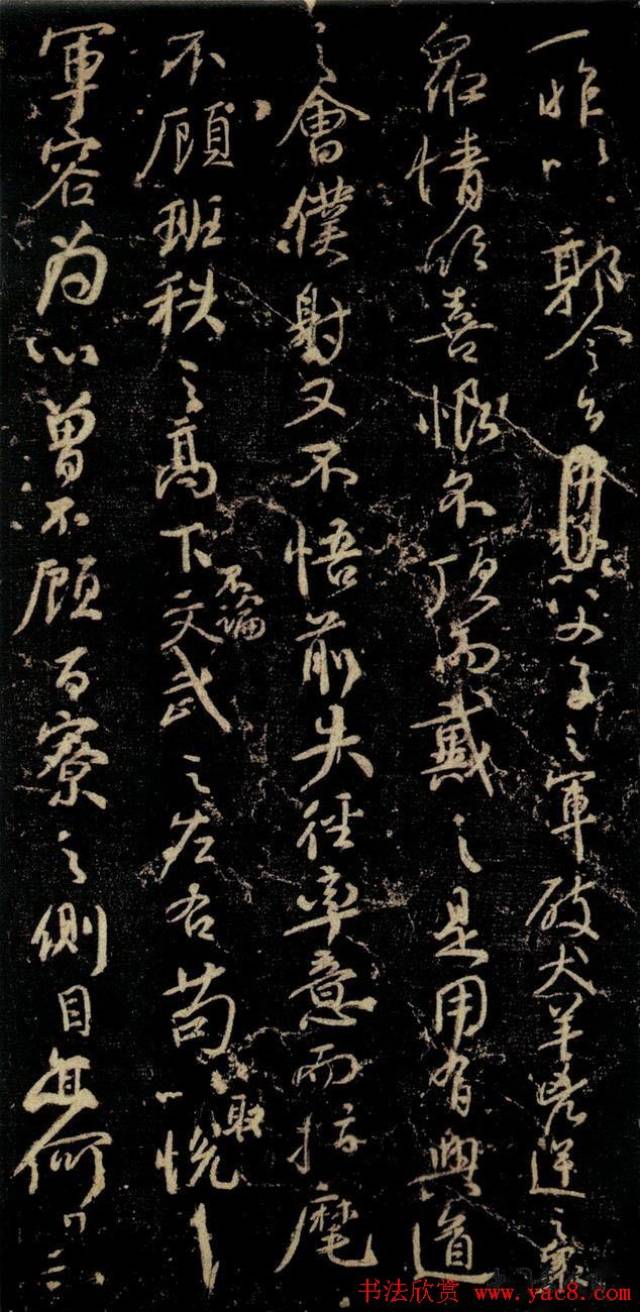 一昨以郭令公以父子之軍破犬羊兇逆之衆
衆情欣喜恨不頂而戴之是用有興道
之會僕射又不悟前失徑率意而指麾
不顧班秩之高下不論文武之左右苟以取悅
軍容為心曾不顧百寮之側目亦何
书法欣赏 www.yac8.com